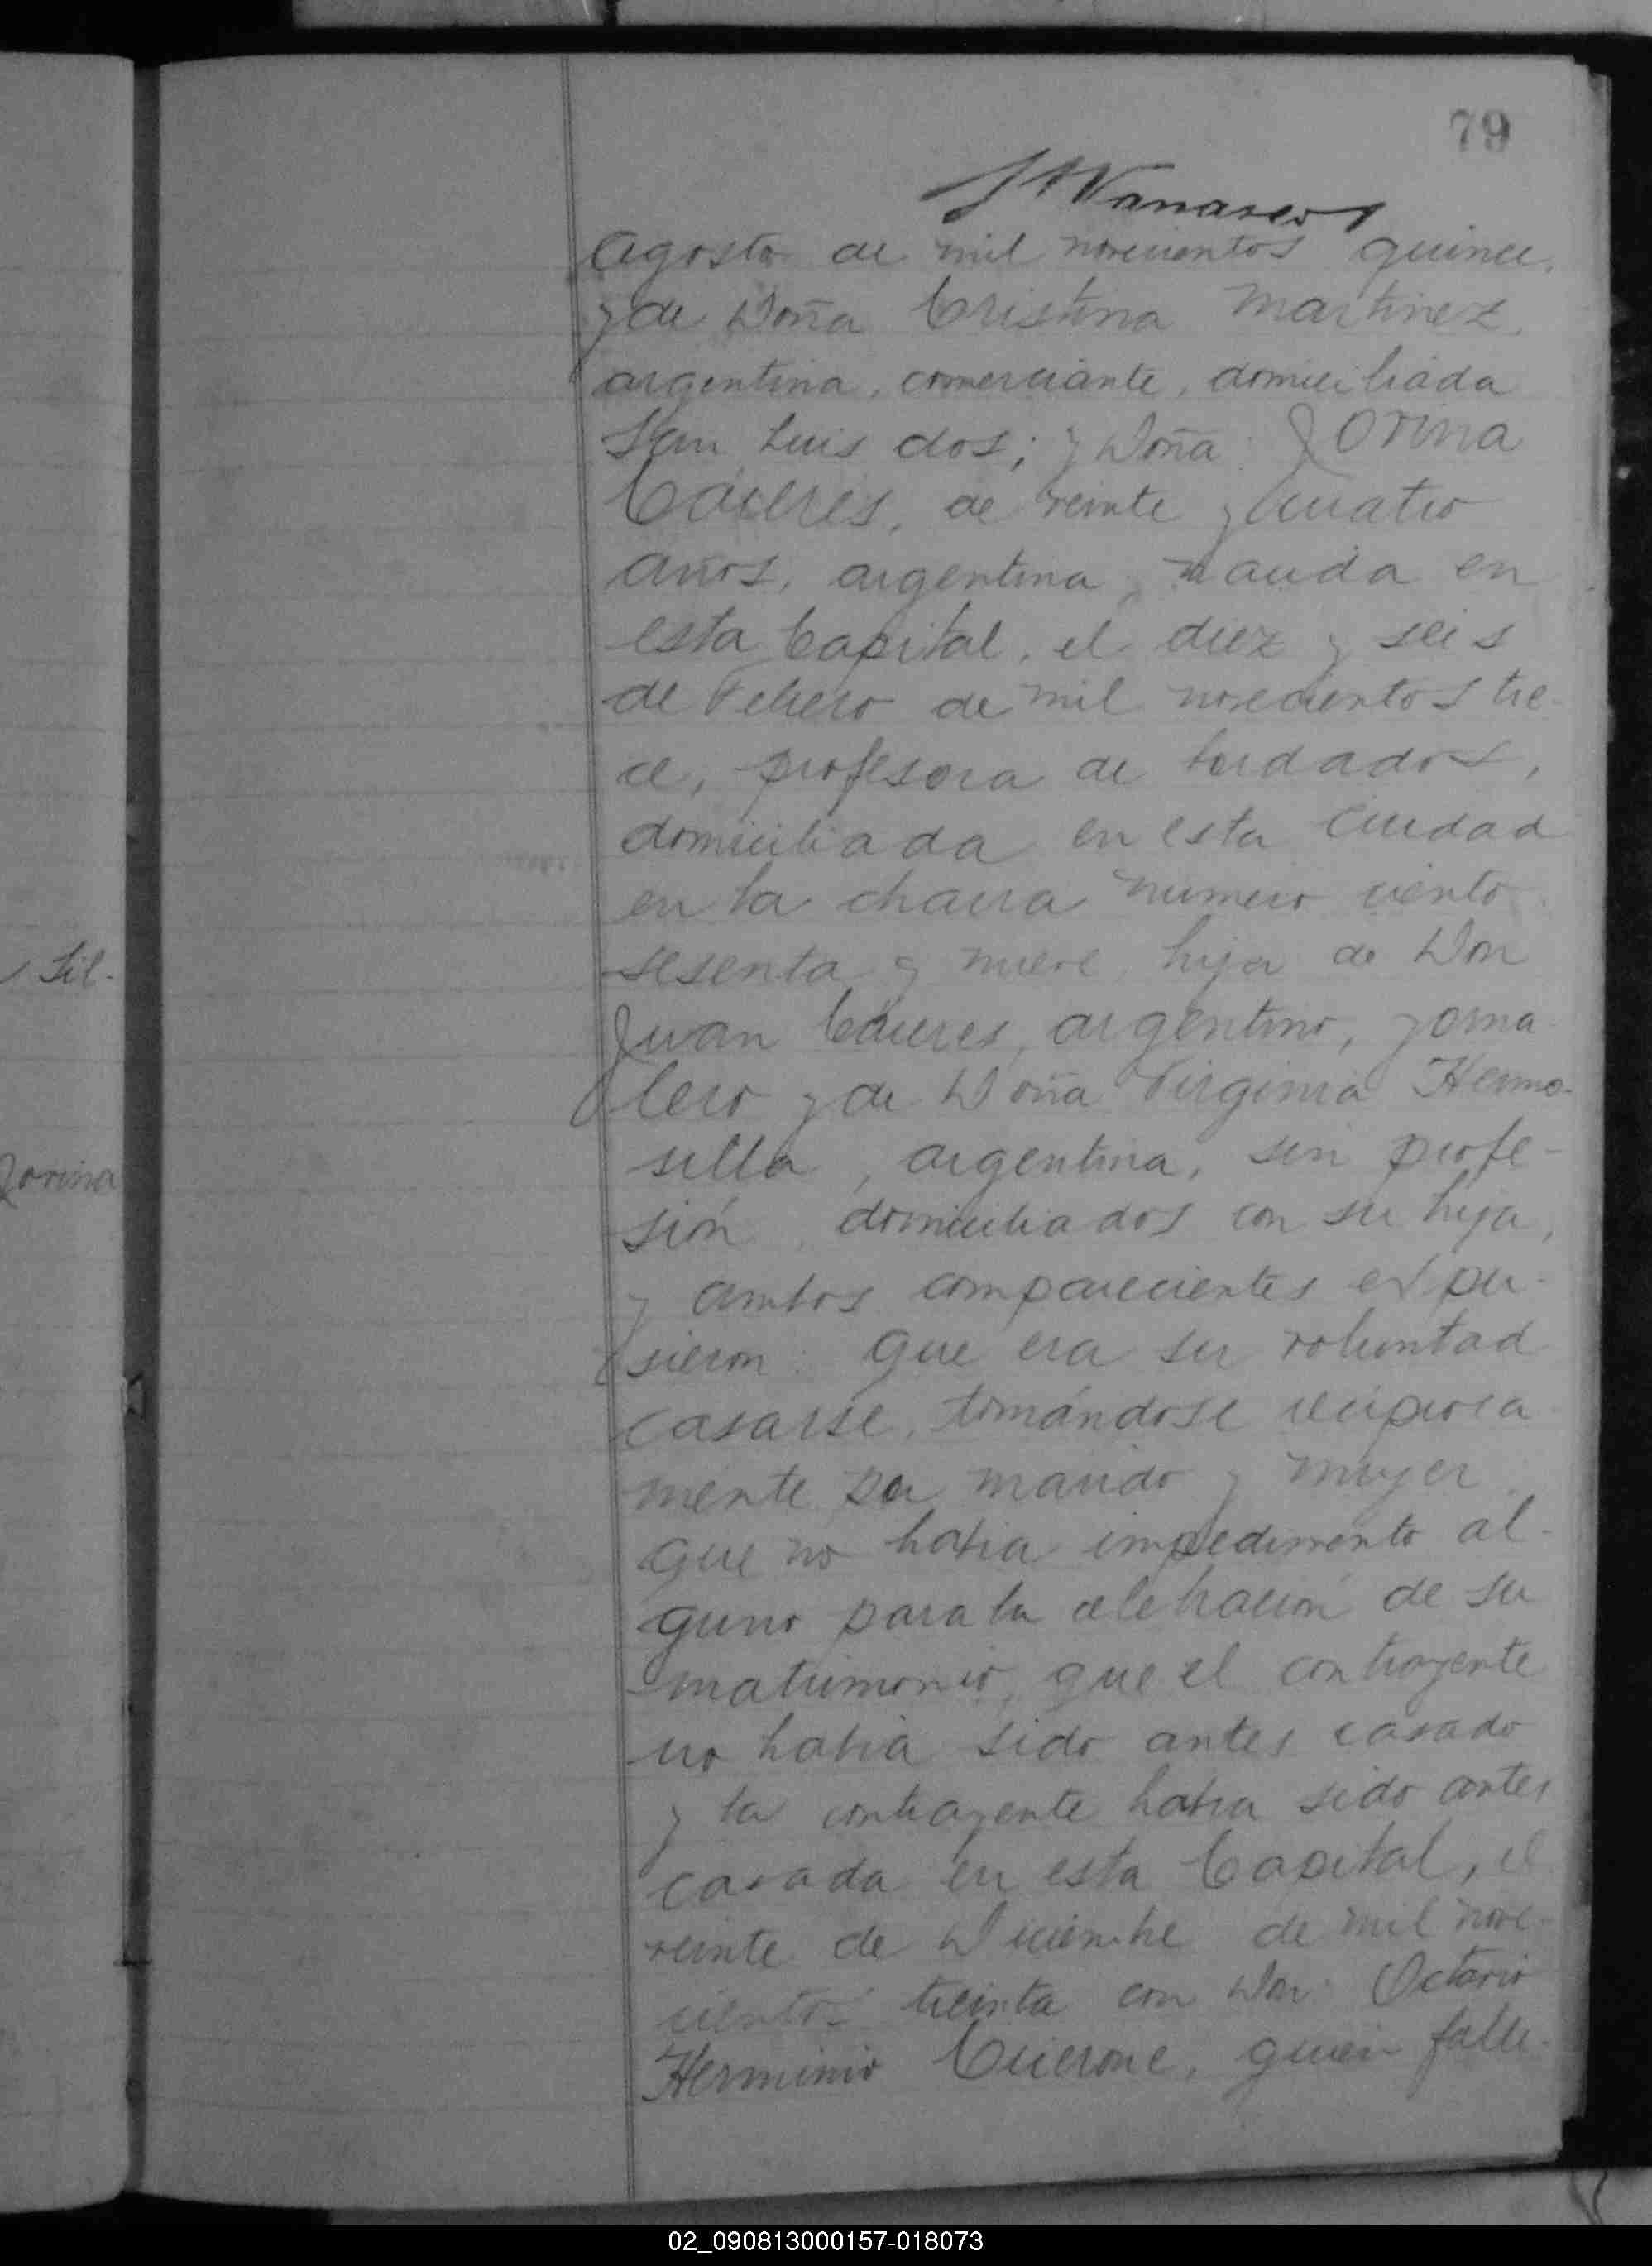 79
agosto de mil novecientos quince,
y de Doña Cristina Martinez,
argentina, comerciante, domiciliada
San Luis dos; y Doña: Jorina
Cáceres, de veinte y cuatro
años, argentina, nacida en
esta Capital, el diez y seis
de Febrero de mil novecientos tre-
ce, profesora de bordados,
domiciliada en esta Ciudad
en la chacra numero ciento
sesenta y nueve, hija de Don
Juan Cáceres, argentino, jorna-
lero y de Doña Virginia Hermo-
silla, argentina, sin profe-
sión, domiciliados con su hija,
y ambos comparecientes expu-
sieron: Que era su voluntad
casarse, tomándose reciproca
mente por marido y mujer.
Que no habia impedimento al-
guno para la celebración de su
matrimonio, que el contrayente
no habia sido antes casado
y la contrayente habia sido antes
casada en esta Capital, el
veinte de Diciembre de mil nove-
cientos treinta con Don: Octavio
Herminio Cicerone, quien falle-
Sil-
Jorina
02_090813000157-018073